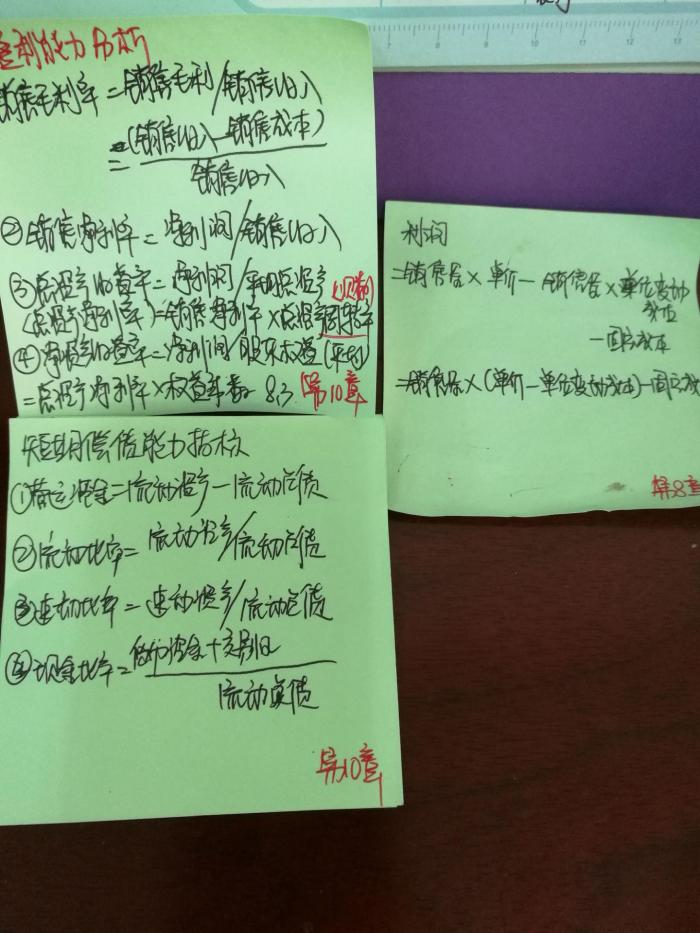 盈利能力分析
销售毛利率=销售毛利/销售收入
=(销售收入-销售成本)
销售收入
②销售净利率=净利润/销售收入
③总资产收益率=净利润/平均总资产
(总资产净利率)=销售净利率×总资产周转率
④净资产收益率=净利润/股东权益(平均)
=总资产净利率×权益乘数
第10章
短期偿债能力指标
①营运资金=流动资产-流动负债
②流动比率=流动资产/流动负债
③速动比率=速动资产/流动负债
④现金比率=货币资金+交易
流动负债
第10章
利润
=销售量×单价-销售量×单位变动
成本
-固定成本
=销售量×(单价-单位变动成本)-固定成
第8章
7 8 9 10 11 12 13